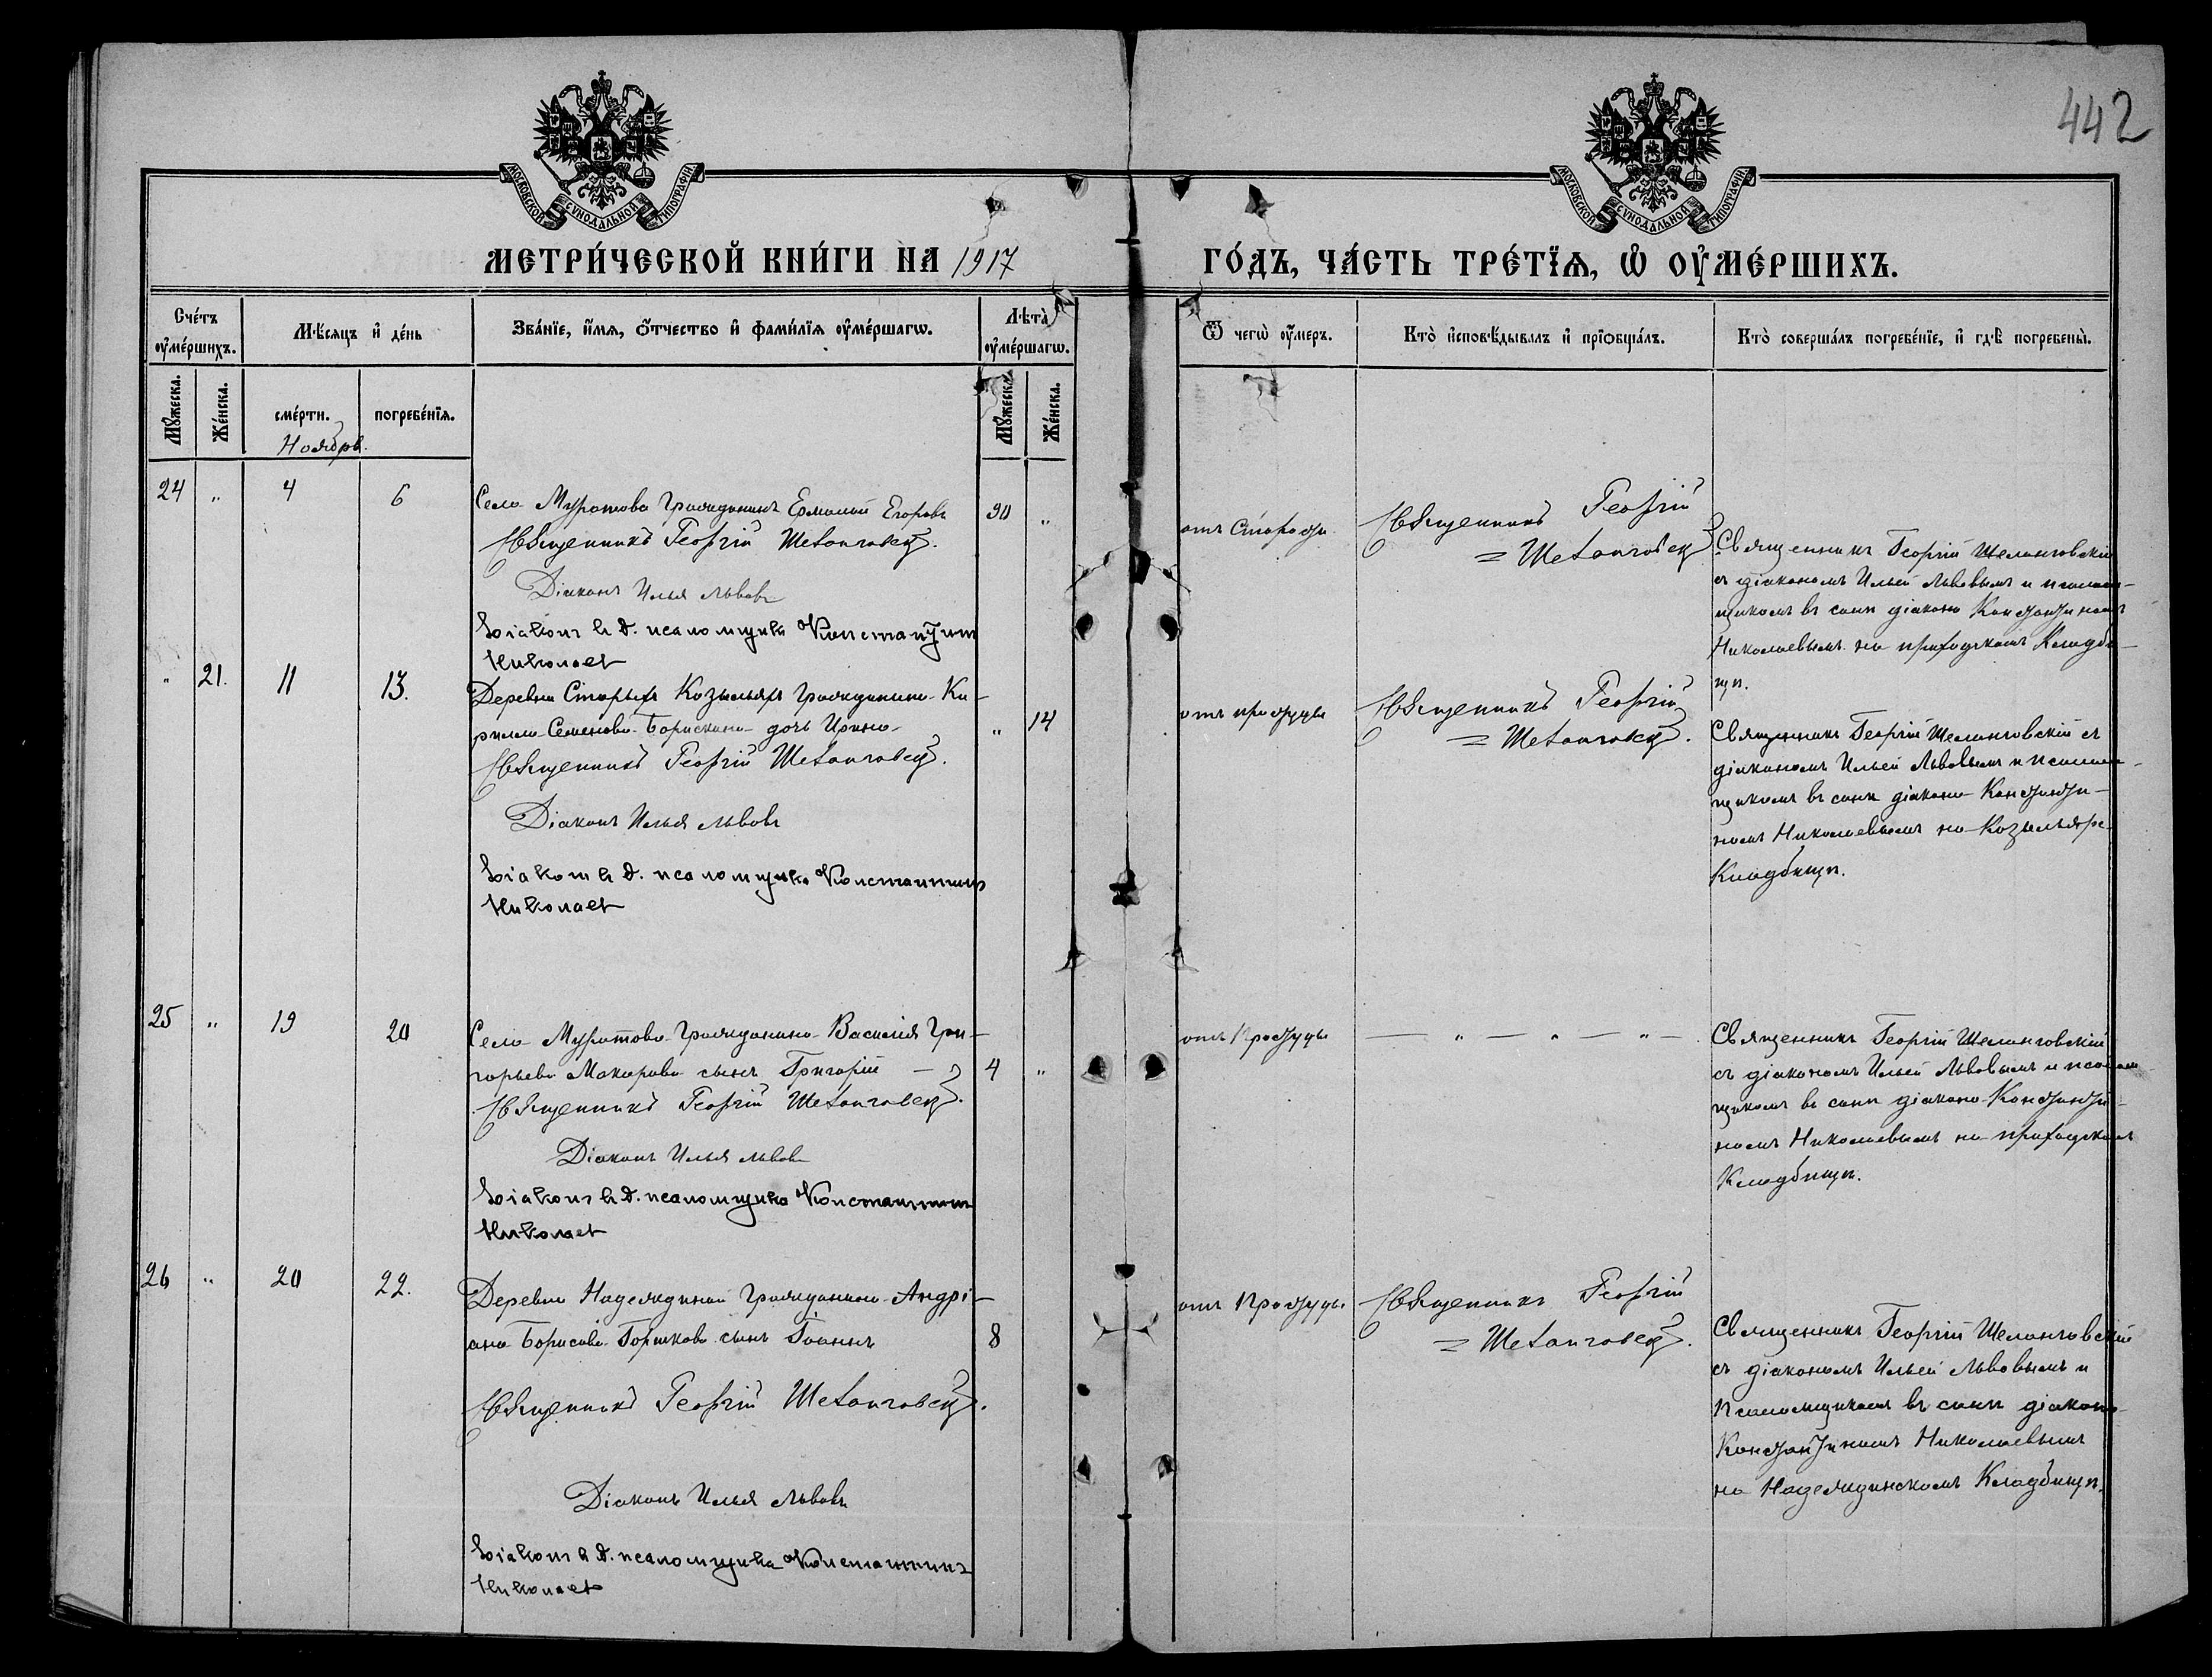 442
МОСКОВСКОЙ СѴНОДАЛЬНОЙ ТИПОГРАФІИ
МОСКОВСКОЙ СѴНОДАЛЬНОЙ ТИПОГРАФІИ
МЕТРИ́ЧЕСКОЙ КНИ́ГИ НА 1917
ГО́ДЪ, ЧА́СТЬ ТРЕ́ТЇѦ, Ѡ҆ ОУ҆МЕ́РШИХЪ.
Сче́тъ оу҆ме́ршихъ.
Мѣ́сѧцъ и҆ де́нь
Зва́нїе, и҆́мѧ, ѻ҆́тчество и҆ фами́лїѧ оу҆ме́ршагѡ.
Лѣ́та оу҆ме́ршагѡ.
Ѿ чегѡ̀ оу҆́меръ.
Кто̀ и҆сповѣ́дывалъ и҆ прїѻбща́лъ.
Кто̀ соверша́лъ погребе́нїе, и҆ гдѣ̀ погребены̀.
Мꙋ́жеска.
Же́нска.
сме́рти.
погребе́нїѧ.
Мꙋ́жеска.
Же́нска.
Ноябрь.
24 " 4 6
Село Муратово Гражданинъ Ермолай Егоровъ
90 "
Священникъ Георгій Шеланговскій.
Діаконъ Илья Львовъ
Діаконъ и. д. псаломщика Константинъ
Николаевъ
отъ старости
Священникъ Георгій
= Шеланговскій
Священникъ Георгій Шеланговскій
съ діакономъ Ильей Львовымъ и псалом-
щикомъ въ санѣ діакона Константиномъ
Николаевымъ на приходскомъ Кладби-
щѣ.
" 21. 11 13.
Деревни Старыхъ Козыльяръ гражданина Ки-
рилла Семенова Борискина дочь Ирина
" 14
Священникъ Георгій Шеланговскій.
Діаконъ Илья Львовъ
Діаконъ и. д. псаломщика Константинъ
Николаевъ
отъ простуды
Священникъ Георгій
= Шеланговскій.
Священникъ Георгій Шеланговскій съ
діакономъ Ильей Львовымъ и псалом-
щикомъ въ санѣ діакона Константи-
номъ Николаевымъ на Козыльяр.
Кладбищѣ.
25 " 19 20
Села Муратова гражданина Василія Гри-
горьева Макарова сынъ Григорій —
4 "
Священникъ Георгій Шеланговскій.
Діаконъ Илья Львовъ
Діаконъ и. д. псаломщика Константинъ
Николаевъ
отъ простуды
— " — " — " —
Священникъ Георгій Шеланговскій
съ діакономъ Ильей Львовымъ и псалом-
щикомъ въ санѣ діакона Константи-
номъ Николаевымъ на приходскомъ
Кладбищѣ.
26 " 20 22.
Деревни Надеждиной гражданина Андрі-
ана Борисова Горшкова сынъ Іоаннъ
8
Священникъ Георгій Шеланговскій.
Діаконъ Илья Львовъ
Діаконъ и. д. псаломщика Константинъ
Николаевъ
отъ простуды
Священникъ Георгій
= Шеланговскій.
Священникъ Георгій Шеланговскій
съ діакономъ Ильей Львовымъ и
псаломщикомъ въ санѣ діакона
Константиномъ Николаевымъ
на Надеждинскомъ Кладбищѣ.